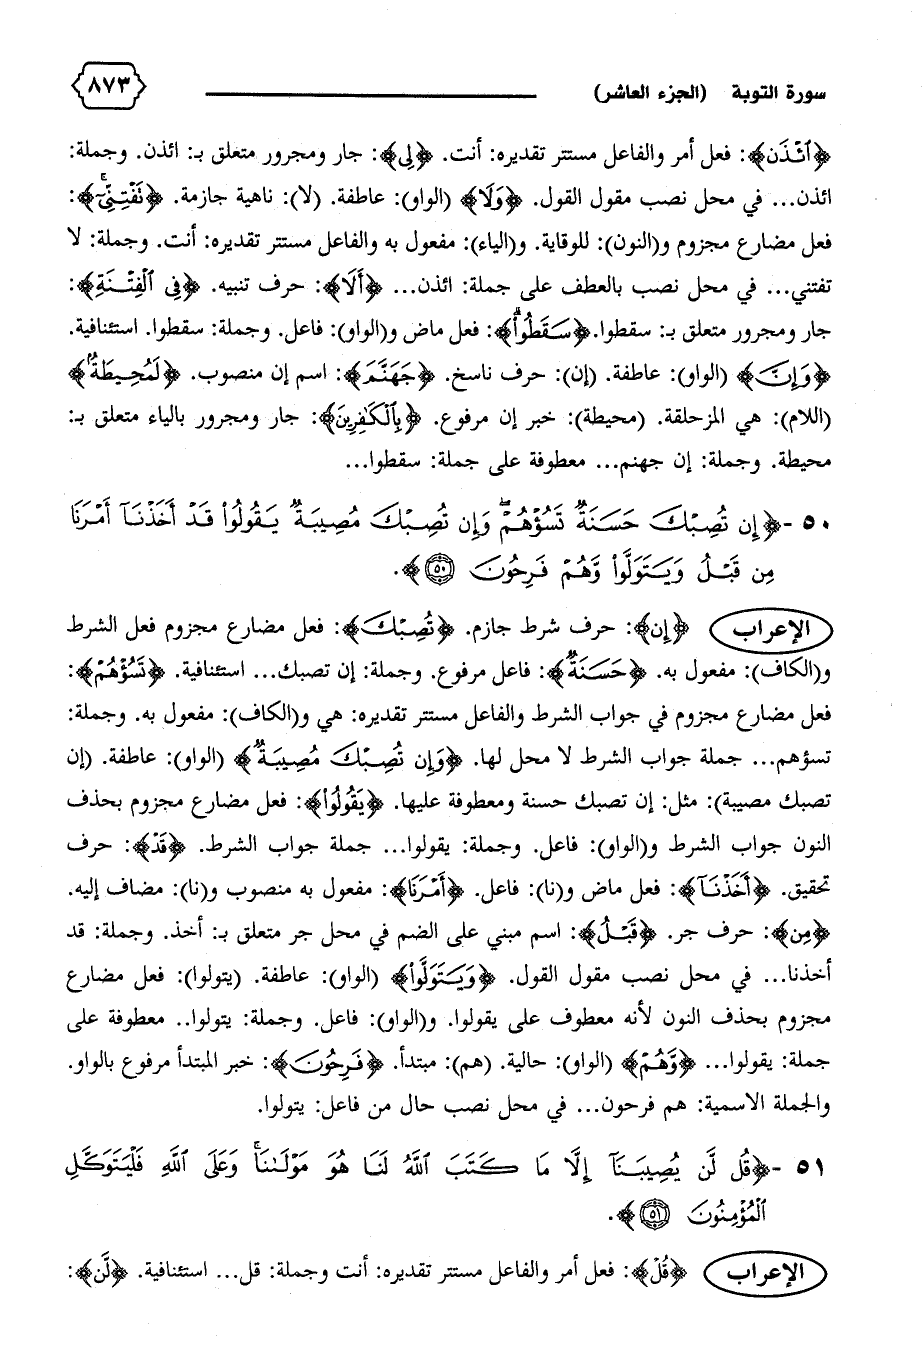 سورة التوبة (الجزء العاشر) ٨٧٣
﴿ٱئْذَن﴾: فعل أمر والفاعل مستتر تقديره: أنت. ﴿لِّي﴾: جار ومجرور متعلق بـ: ائذن. وجملة:
ائذن... في محل نصب مقول القول. ﴿وَلَا﴾ (الواو): عاطفة. (لا): ناهية جازمة. ﴿تَفْتِنِّيٓۚ﴾:
فعل مضارع مجزوم و(النون): للوقاية. و(الياء): مفعول به والفاعل مستتر تقديره: أنت. وجملة: لا
تفتني... في محل نصب بالعطف على جملة: ائذن... ﴿أَلَا﴾: حرف تنبيه. ﴿فِى ٱلْفِتْنَةِ﴾:
جار ومجرور متعلق بـ: سقطوا. ﴿سَقَطُوا۟ۗ﴾: فعل ماض و(الواو): فاعل. وجملة: سقطوا. استئنافية.
﴿وَإِنَّ﴾ (الواو): عاطفة. (إن): حرف ناسخ. ﴿جَهَنَّمَ﴾: اسم إن منصوب. ﴿لَمُحِيطَةٌۢ﴾
(اللام): هي المزحلقة. (محيطة): خبر إن مرفوع. ﴿بِٱلْكَٰفِرِينَ﴾: جار ومجرور بالياء متعلق بـ:
محيطة. وجملة: إن جهنم... معطوفة على جملة: سقطوا...
٥٠ -﴿إِن تُصِبْكَ حَسَنَةٌ تَسُؤْهُمْۖ وَإِن تُصِبْكَ مُصِيبَةٌ يَقُولُوا۟ قَدْ أَخَذْنَآ أَمْرَنَا
مِن قَبْلُ وَيَتَوَلَّوا۟ وَّهُمْ فَرِحُونَ ٥٠﴾.
الإعراب ﴿إِن﴾: حرف شرط جازم. ﴿تُصِبْكَ﴾: فعل مضارع مجزوم فعل الشرط
و(الكاف): مفعول به. ﴿حَسَنَةٌ﴾: فاعل مرفوع. وجملة: إن تصبك... استئنافية. ﴿تَسُؤْهُمْ﴾:
فعل مضارع مجزوم في جواب الشرط والفاعل مستتر تقديره: هي و(الكاف): مفعول به. وجملة:
تسؤهم... جملة جواب الشرط لا محل لها. ﴿وَإِن تُصِبْكَ مُصِيبَةٌ﴾ (الواو): عاطفة. (إن
تصبك مصيبة): مثل: إن تصبك حسنة ومعطوفة عليها. ﴿يَقُولُوا۟﴾: فعل مضارع مجزوم بحذف
النون جواب الشرط و(الواو): فاعل. وجملة: يقولوا... جملة جواب الشرط. ﴿قَدْ﴾: حرف
تحقيق. ﴿أَخَذْنَآ﴾: فعل ماض و(نا): فاعل. ﴿أَمْرَنَا﴾: مفعول به منصوب و(نا): مضاف إليه.
﴿مِن﴾: حرف جر. ﴿قَبْلُ﴾: اسم مبني على الضم في محل جر متعلق بـ: أخذ. وجملة: قد
أخذنا... في محل نصب مقول القول. ﴿وَيَتَوَلَّوا۟﴾ (الواو): عاطفة. (يتولوا): فعل مضارع
مجزوم بحذف النون لأنه معطوف على يقولوا. و(الواو): فاعل. وجملة: يتولوا.. معطوفة على
جملة: يقولوا... ﴿وَّهُمْ﴾ (الواو): حالية. (هم): مبتدأ. ﴿فَرِحُونَ﴾: خبر المبتدأ مرفوع بالواو.
والجملة الاسمية: هم فرحون... في محل نصب حال من فاعل: يتولوا.
٥١ -﴿قُل لَّن يُصِيبَنَآ إِلَّا مَا كَتَبَ ٱللَّهُ لَنَا هُوَ مَوْلَىٰنَاۚ وَعَلَى ٱللَّهِ فَلْيَتَوَكَّلِ
ٱلْمُؤْمِنُونَ ٥١﴾.
الإعراب ﴿قُلْ﴾: فعل أمر والفاعل مستتر تقديره: أنت وجملة: قل... استئنافية. ﴿لَّن﴾: